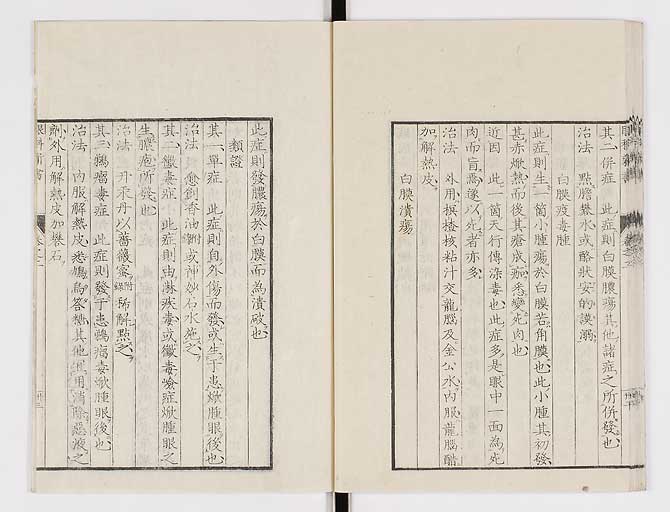 其二併症　此症則白膜膿瘍其他諸症之所併發也
治法　點膽礬水或酪狀安的謨溺
白膜疫毒腫
此症則生一箇小腫瘍於白膜若角膜也此小腫其初發
甚赤焮熱而後其瘡成痂悉變死肉也
近因　此一箇天行傳染毒也此症多是眼中一面為死
肉而盲焉遂以死者亦多
治法　外用榠樝核粘汁交龍腦及金公水內服龍腦醋
加解熱皮
白膜潰瘍
此症則發膿瘍於白膜而為潰破也
類證
其一單症　此症則自外傷而發或生于患焮腫眼後也
治法　愈創香油附錄或神妙石水施之
其二黴毒症　此症則由痳疾毒或黴毒嶮症焮腫眼之
生膿疱所發也
治法　丹汞丹以薔薇蜜附錄稀解點之
其三鵝瘤毒症　此症則發于患鵝瘤毒焮腫眼後也
治法　內服解熱皮悉鳩烏答加其他須用消除惡液之
劑外用解熱皮加礬石